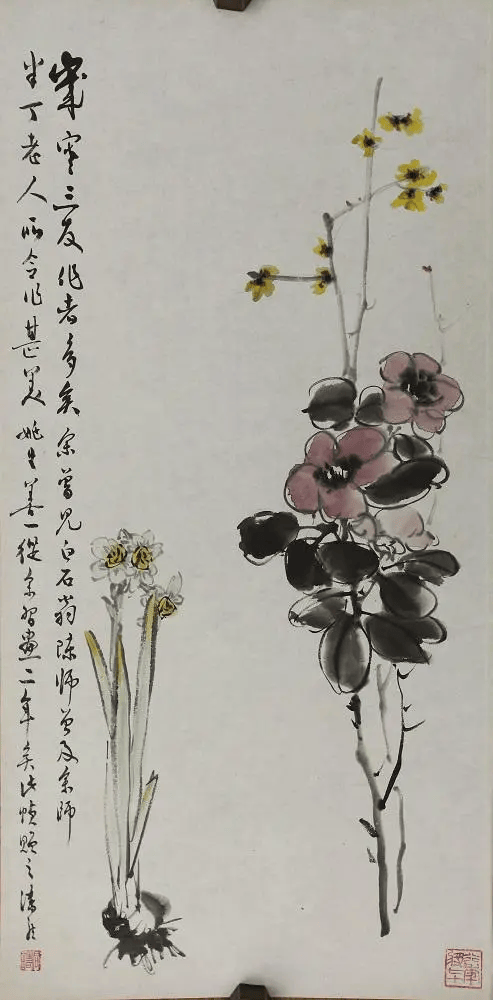 歲寒三友作者多矣余曾見白石翁陳師曾及余師
半丁老人所合作甚美姚生善一從余習畫二年矣此幀